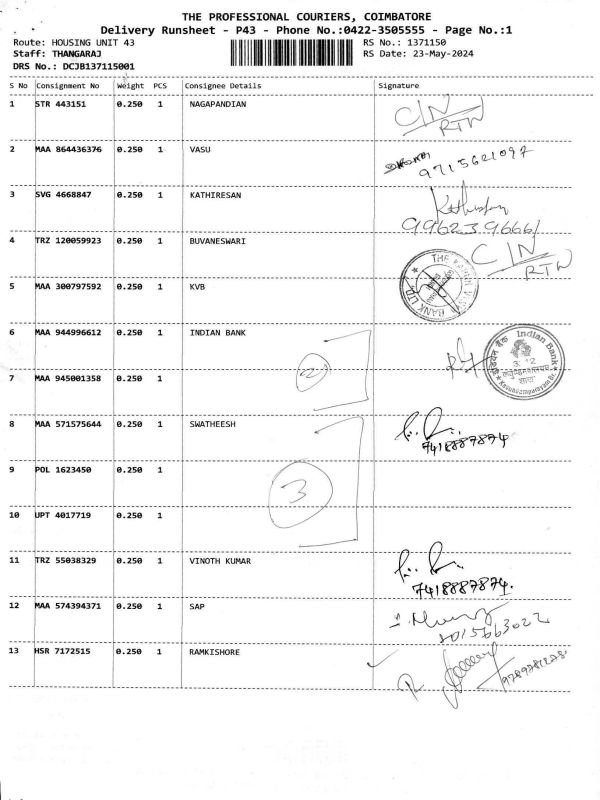 THE PROFESSIONAL COURIERS, COIMBATORE
Delivery Runsheet - P43 - Phone No.:0422-3505555 - Page No.:1
Route: HOUSING UNIT 43 RS No.: 1371150
Staff: THANGARAJ RS Date: 23-May-2024
DRS No.: DCJB137115001
S No Consignment No Weight PCS Consignee Details Signature
1 STR 443151 0.250 1 NAGAPANDIAN C/N
RTN
2 MAA 864436376 0.250 1 VASU
9715621097
3 SVG 4668847 0.250 1 KATHIRESAN Kathiresan
996239666/
4 TRZ 120059923 0.250 1 BUVANESWARI C/N
RTN
5 MAA 300797592 0.250 1 KVB
BANK LTD
6 MAA 944996612 0.250 1 INDIAN BANK
Indian Bank
2
7 MAA 945001358 0.250 1
8 MAA 571575644 0.250 1 SWATHEESH
7418887874
9 POL 1623450 0.250 1
3
10 UPT 4017719 0.250 1
11 TRZ 55038329 0.250 1 VINOTH KUMAR
7418887874.
12 MAA 574394371 0.250 1 SAP
7015663022
13 HSR 7172515 0.250 1 RAMKISHORE